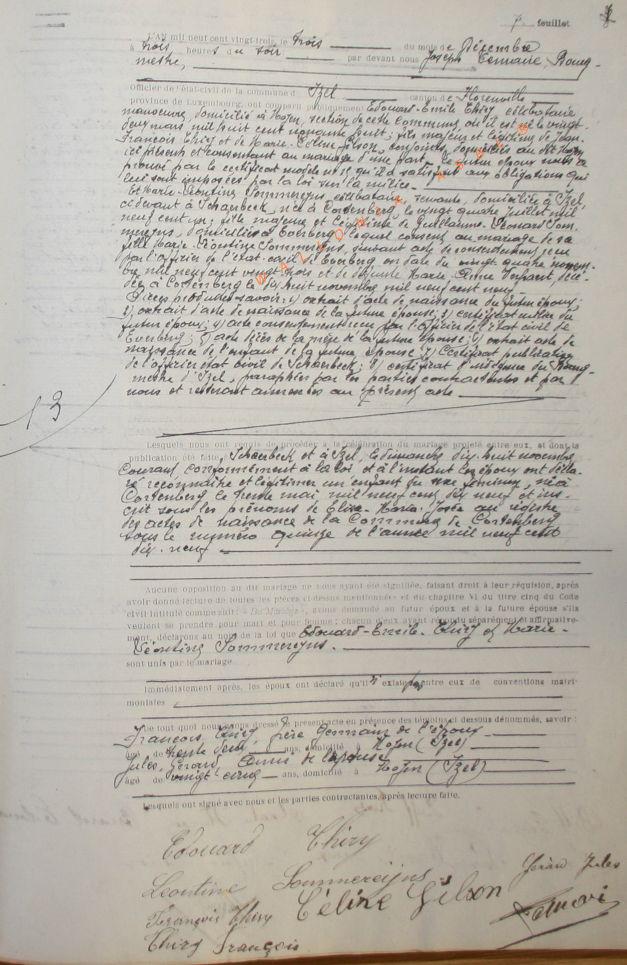 7e feuillet
L'AN mil neuf cent vingt-trois, le trois du mois de Décembre
à trois heures du soir par devant nous Joseph Bourg-
mestre,
officier de l'état-civil de la commune d'Izel canton de Florenville
province de Luxembourg, ont comparu publiquement Edouard-Emile Thiry, célibataire
manoeuvre, domicilié à Moyen, section de cette commune où il est né le vingt-
deux mars mil huit cent nonante huit, fils majeur et légitime de Jean
François Thiry et de Marie-Céline Gilson, conjoints, domiciliés au dit Moyen
ici présents et consentant au mariage d'une part. Le futur époux nous a
prouvé par le certificat modèle qu'il a satisfait aux obligations qui
lui sont imposées par la loi sur la milice.
Et Marie-Léontine Sommereijns, célibataire, servante, domiciliée à Izel,
ci-devant à Schaerbeek, née à Cortenberg, le vingt quatre juillet mil
neuf cent un, fille majeure et légitime de Guillaume-Léonard Som-
mereijns, domicilié à Everberg, lequel consent au mariage de sa
fille Marie-Léontine Sommereijns, suivant acte de consentement reçu
par l'officier de l'état-civil de Everberg en date du vingt quatre novem-
bre mil neuf cent vingt trois et de défunte Marie-Anne décé-
dée à Cortenberg le dix huit novembre mil neuf cent neuf.
Pièces produites savoir: 1) extrait d'acte de naissance du futur époux;
2) extrait d'acte de naissance de la future épouse; 3) certificat milice du
futur époux; 4) acte consentement reçu par l'officier de l'état civil de
Everberg; 5) acte décès de la mère de la future épouse; 6) extrait acte de
naissance de l'enfant de la future épouse; 7) Certificat publication
de l'officier état civil de Schaerbeek; 8) certificat d'indigence du Bourg-
mestre d'Izel, paraphées par les parties contractantes et par
nous et resteront annexées au présent acte
13
Lesquels nous ont requis de procéder à la célébration du mariage projeté entre eux, et dont la
publication été faite, Schaerbeek et à Izel, le dimanche dix-huit novembre
courant conformément à la loi et à l'instant les époux ont décla-
ré reconnaître et légitimer un enfant du sexe féminin, né à
Cortenberg le trente mai mil neuf cent dix neuf et ins-
crit sous les prénoms de Elisa-Maria-Josée au registre
des actes de naissance de la Commune de Cortenberg
sous le numéro quinze de l'année mil neuf cent
dix-neuf
Aucune opposition au dit mariage ne nous ayant été signifiée, faisant droit à leur réquision, après
avoir donné lecture de toutes les pièces ci-dessus mentionnées et du chapitre VI du titre cinq du Code
civil intitulé comme suit : « Du Mariage », avons demandé au futur époux et à la future épouse s'ils
veulent se prendre pour mari et pour femme ; chacun d'eux ayant répondu séparément et affirmative-
ment, déclarons au nom de la loi que Edouard-Emile Thiry et Marie-
Léontine Sommereijns.
sont unis par le mariage.
Immédiatement après, les époux ont déclaré qu'il n'existe pas entre eux de conventions matri-
moniales
De tout quoi nous avons dressé le présent acte en présence des témoins ci-dessous dénommés, savoir :
François Thiry, frère germain de l'époux
âgé de trente deux ans, domicilié à Moyen (Izel)
Jules Gérard, Ami de l'épouse
âgé de vingt cinq ans, domicilié à Moyen (Izel)
Lesquels ont signé avec nous et les parties contractantes, après lecture faite.
Edouard Thiry
Léontine Sommereijns Gérard Jules
François Thiry Céline Gilson
Thiry François